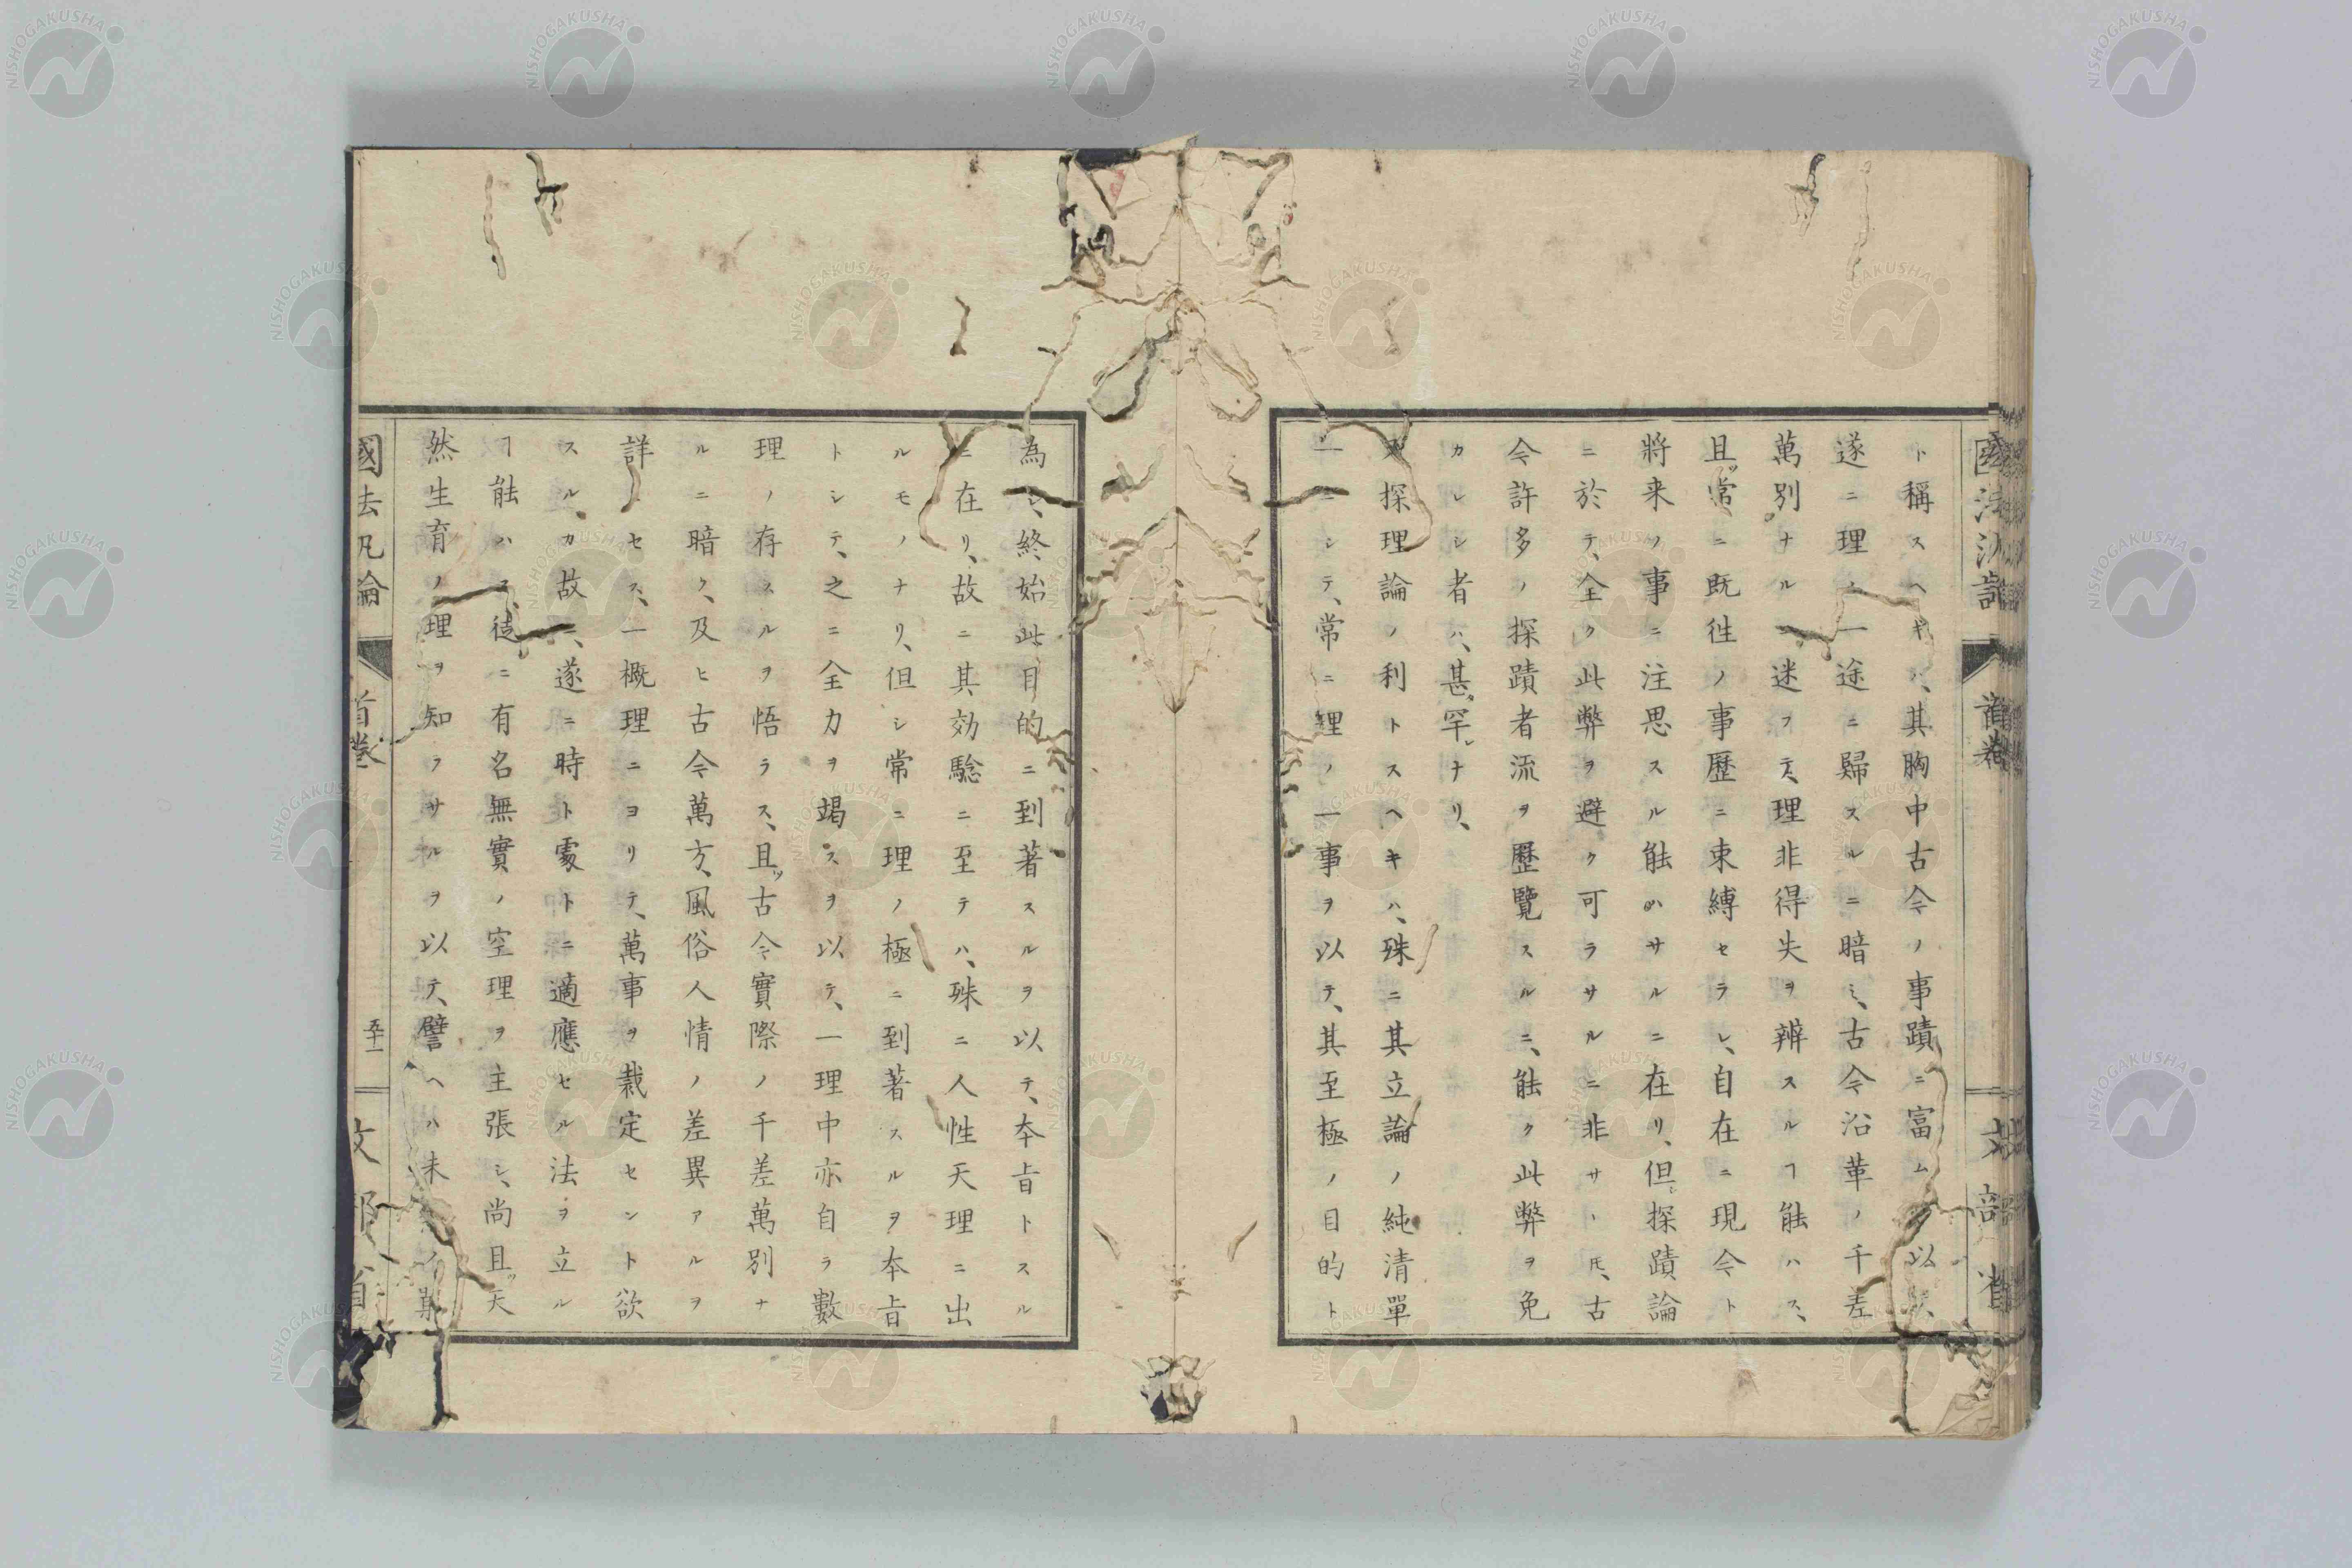 ト稱スヘキハ、其胸中古今ノ事蹟ニ富ムヲ以テ、
遂ニ理ノ一途ニ歸スルニ暗ミ、古今沿革ノ千差
萬別ナルニ迷フテ、理非得失ヲ辨スルヿ能ハス、
且ツ常ニ既徃ノ事歴ニ束縛セラレ、自在ニ現今ト
將来ノ事ニ注思スル能ハサルニ在リ、但シ探蹟論
ニ於テ、全ク此弊ヲ避ク可ラサルニ非サレ𪜈、古
今許多ノ探蹟者流ヲ歷覽スルニ、能ク此弊ヲ免
カレシ者ハ、甚タ罕レナリ、
又探理論ノ利トスヘキハ、殊ニ其立論ノ純清單
一ニシテ、常ニ理ノ一事ヲ以テ、其至極ノ目的ト
為シ、終始此目的ニ到著スルヲ以テ、本旨トスル
ニ在リ、故ニ其効驗ニ至テハ、殊ニ人性天理ニ出
ルモノナリ、但シ常ニ理ノ極ニ到著スルヲ本旨
トシテ、之ニ全力ヲ竭スヲ以テ、一理中亦自ラ數
理ノ存スルヲ悟ラス、且ツ古今實際ノ千差萬別ナ
ルニ暗ク、及ヒ古今萬方、風俗人情ノ差異アルヲ
詳ニセス、一概理ニヨリテ、萬事ヲ裁定セント欲
スルカ故ニ、遂ニ時ト處トニ適應セル法ヲ立ル
ヿ能ハス、徒ニ有名無實ノ空理ヲ主張シ、尚且ツ天
然生育ノ理ヲ知ラサルヲ以テ、譬ヘハ未
國法汎論 首卷 五十一 文部省